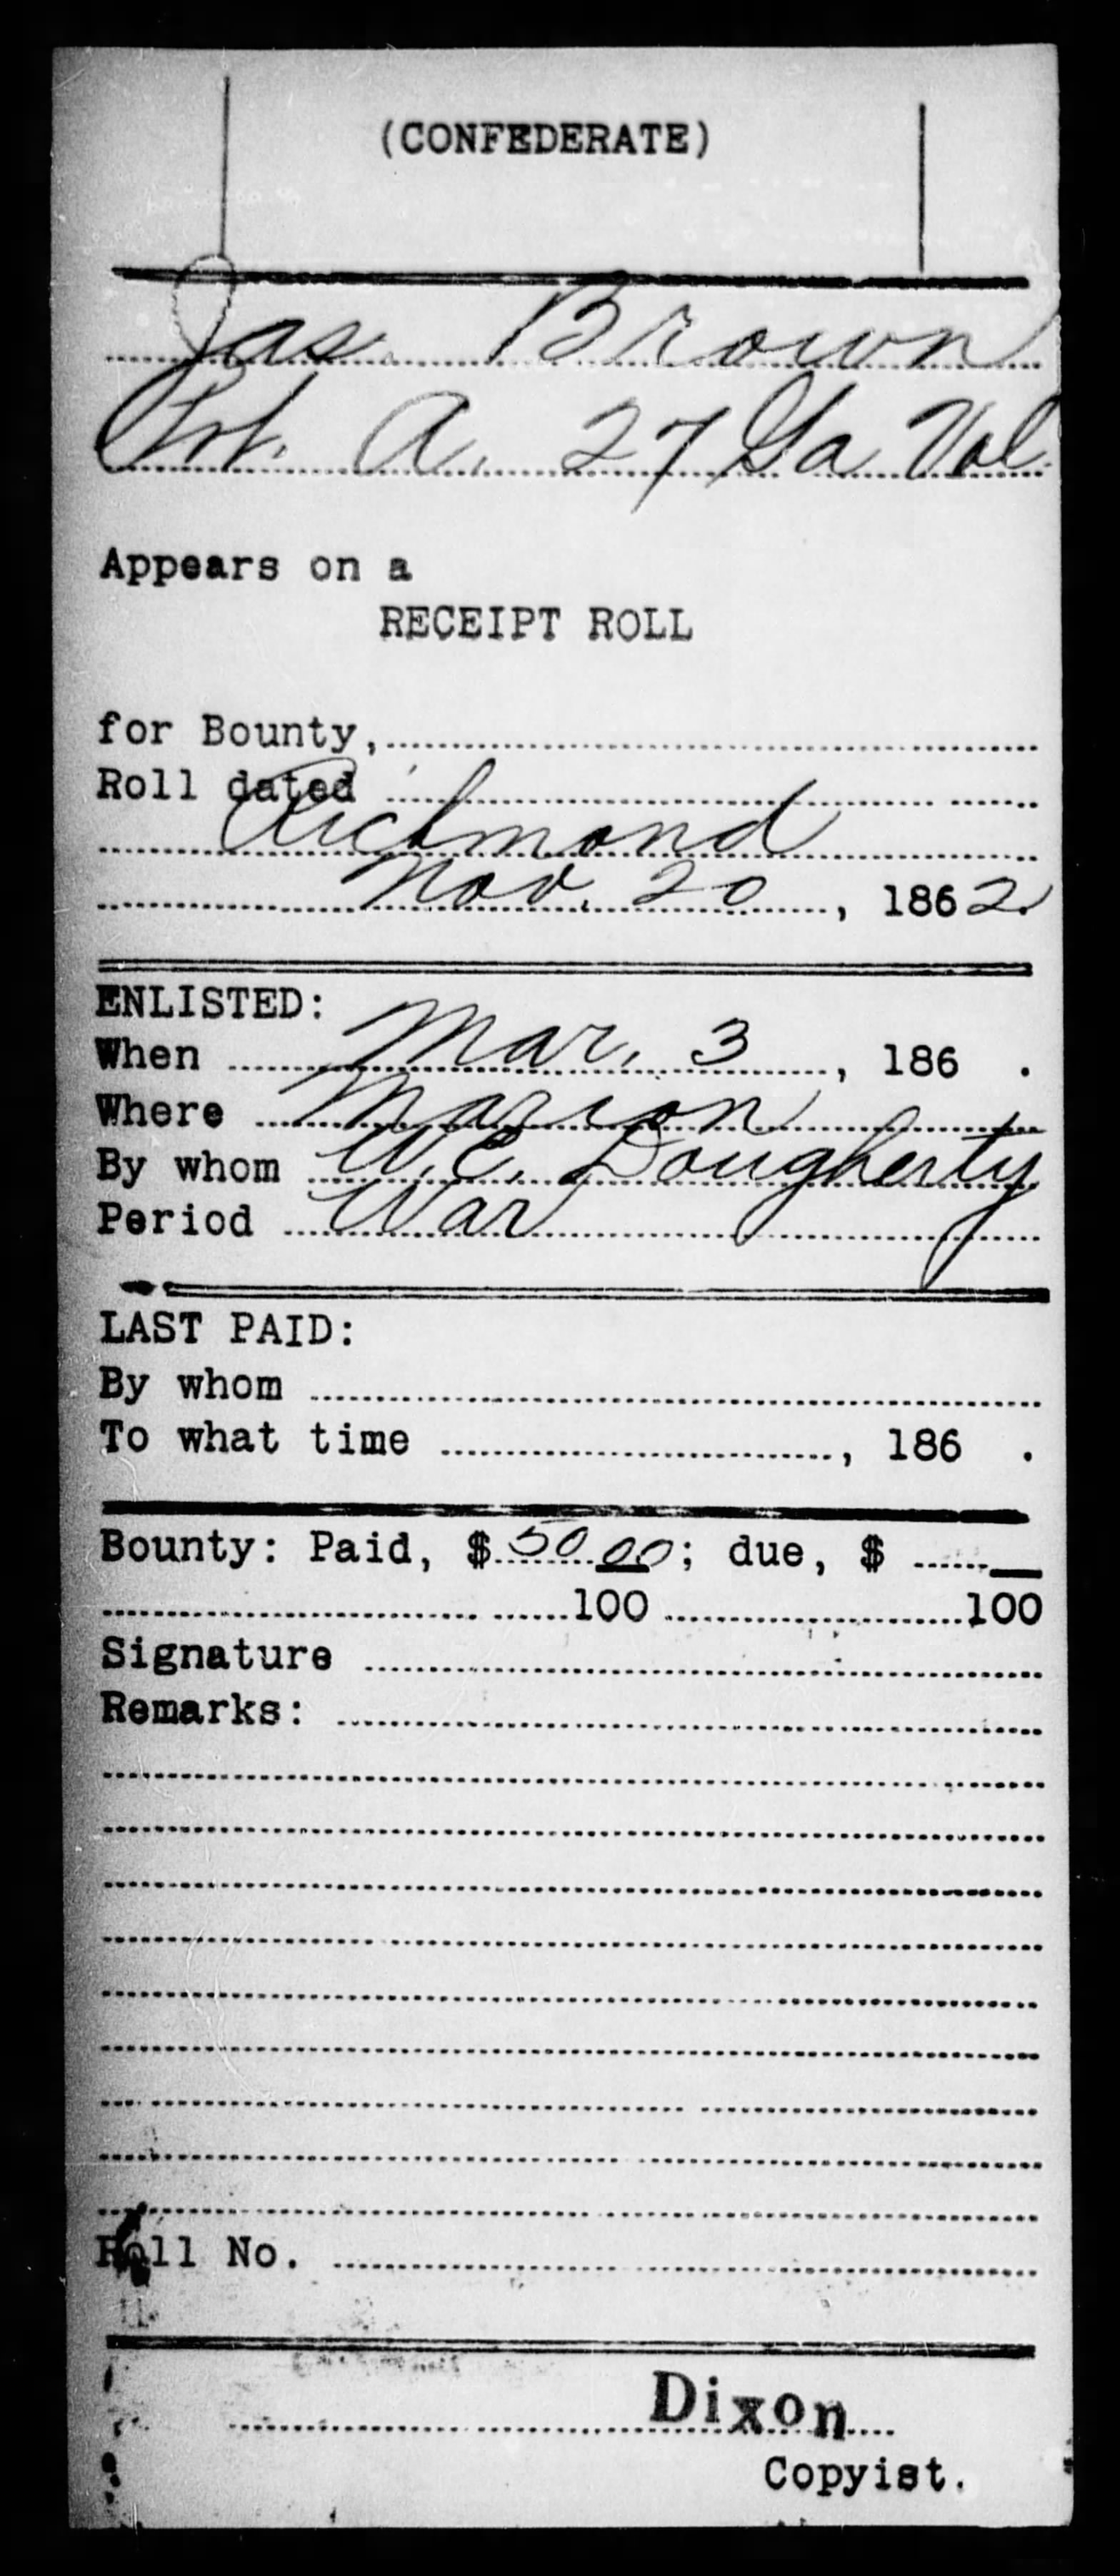 (CONFEDERATE)
Jas. Brown
Pvt. A. 27 Ga Vol.
Appears on a
RECEIPT ROLL
for Bounty,
Roll dated
Richmond
Nov. 20, 1862.
ENLISTED:
When Mar. 3, 186 .
Where Marion
By whom W. C. Dougherty
Period War
LAST PAID:
By whom
To what time , 186 .
Bounty: Paid, $50 00; due, $
100 100
Signature
Remarks:
Roll No.
Dixon
Copyist.